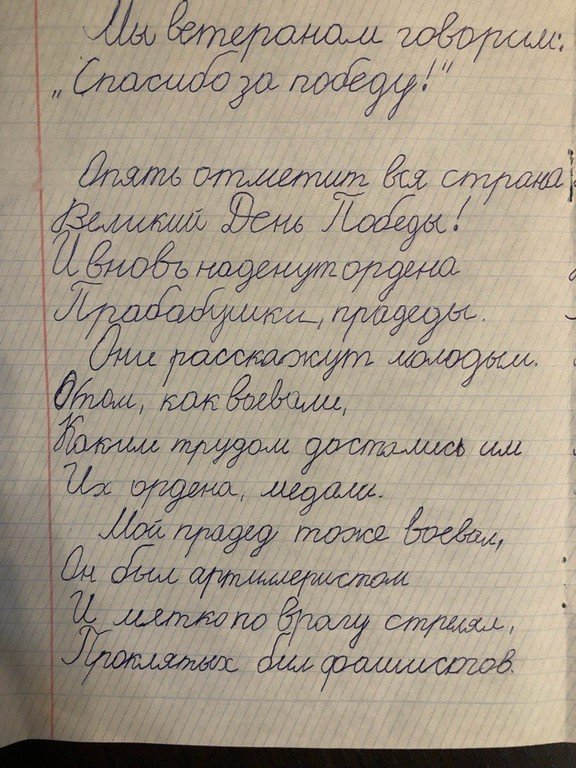 Мы ветеранам говорим:
„Спасибо за победу!“
Опять отметит вся страна
Великий День Победы!
И вновь наденут ордена
Прабабушки, прадеды.
Они расскажут молодым.
О том, как воевали,
Каким трудом достались им
Их ордена, медали.
Мой прадед тоже воевал,
Он был артиллеристом
И метко по врагу стрелял,
Проклятых бил фашистов.